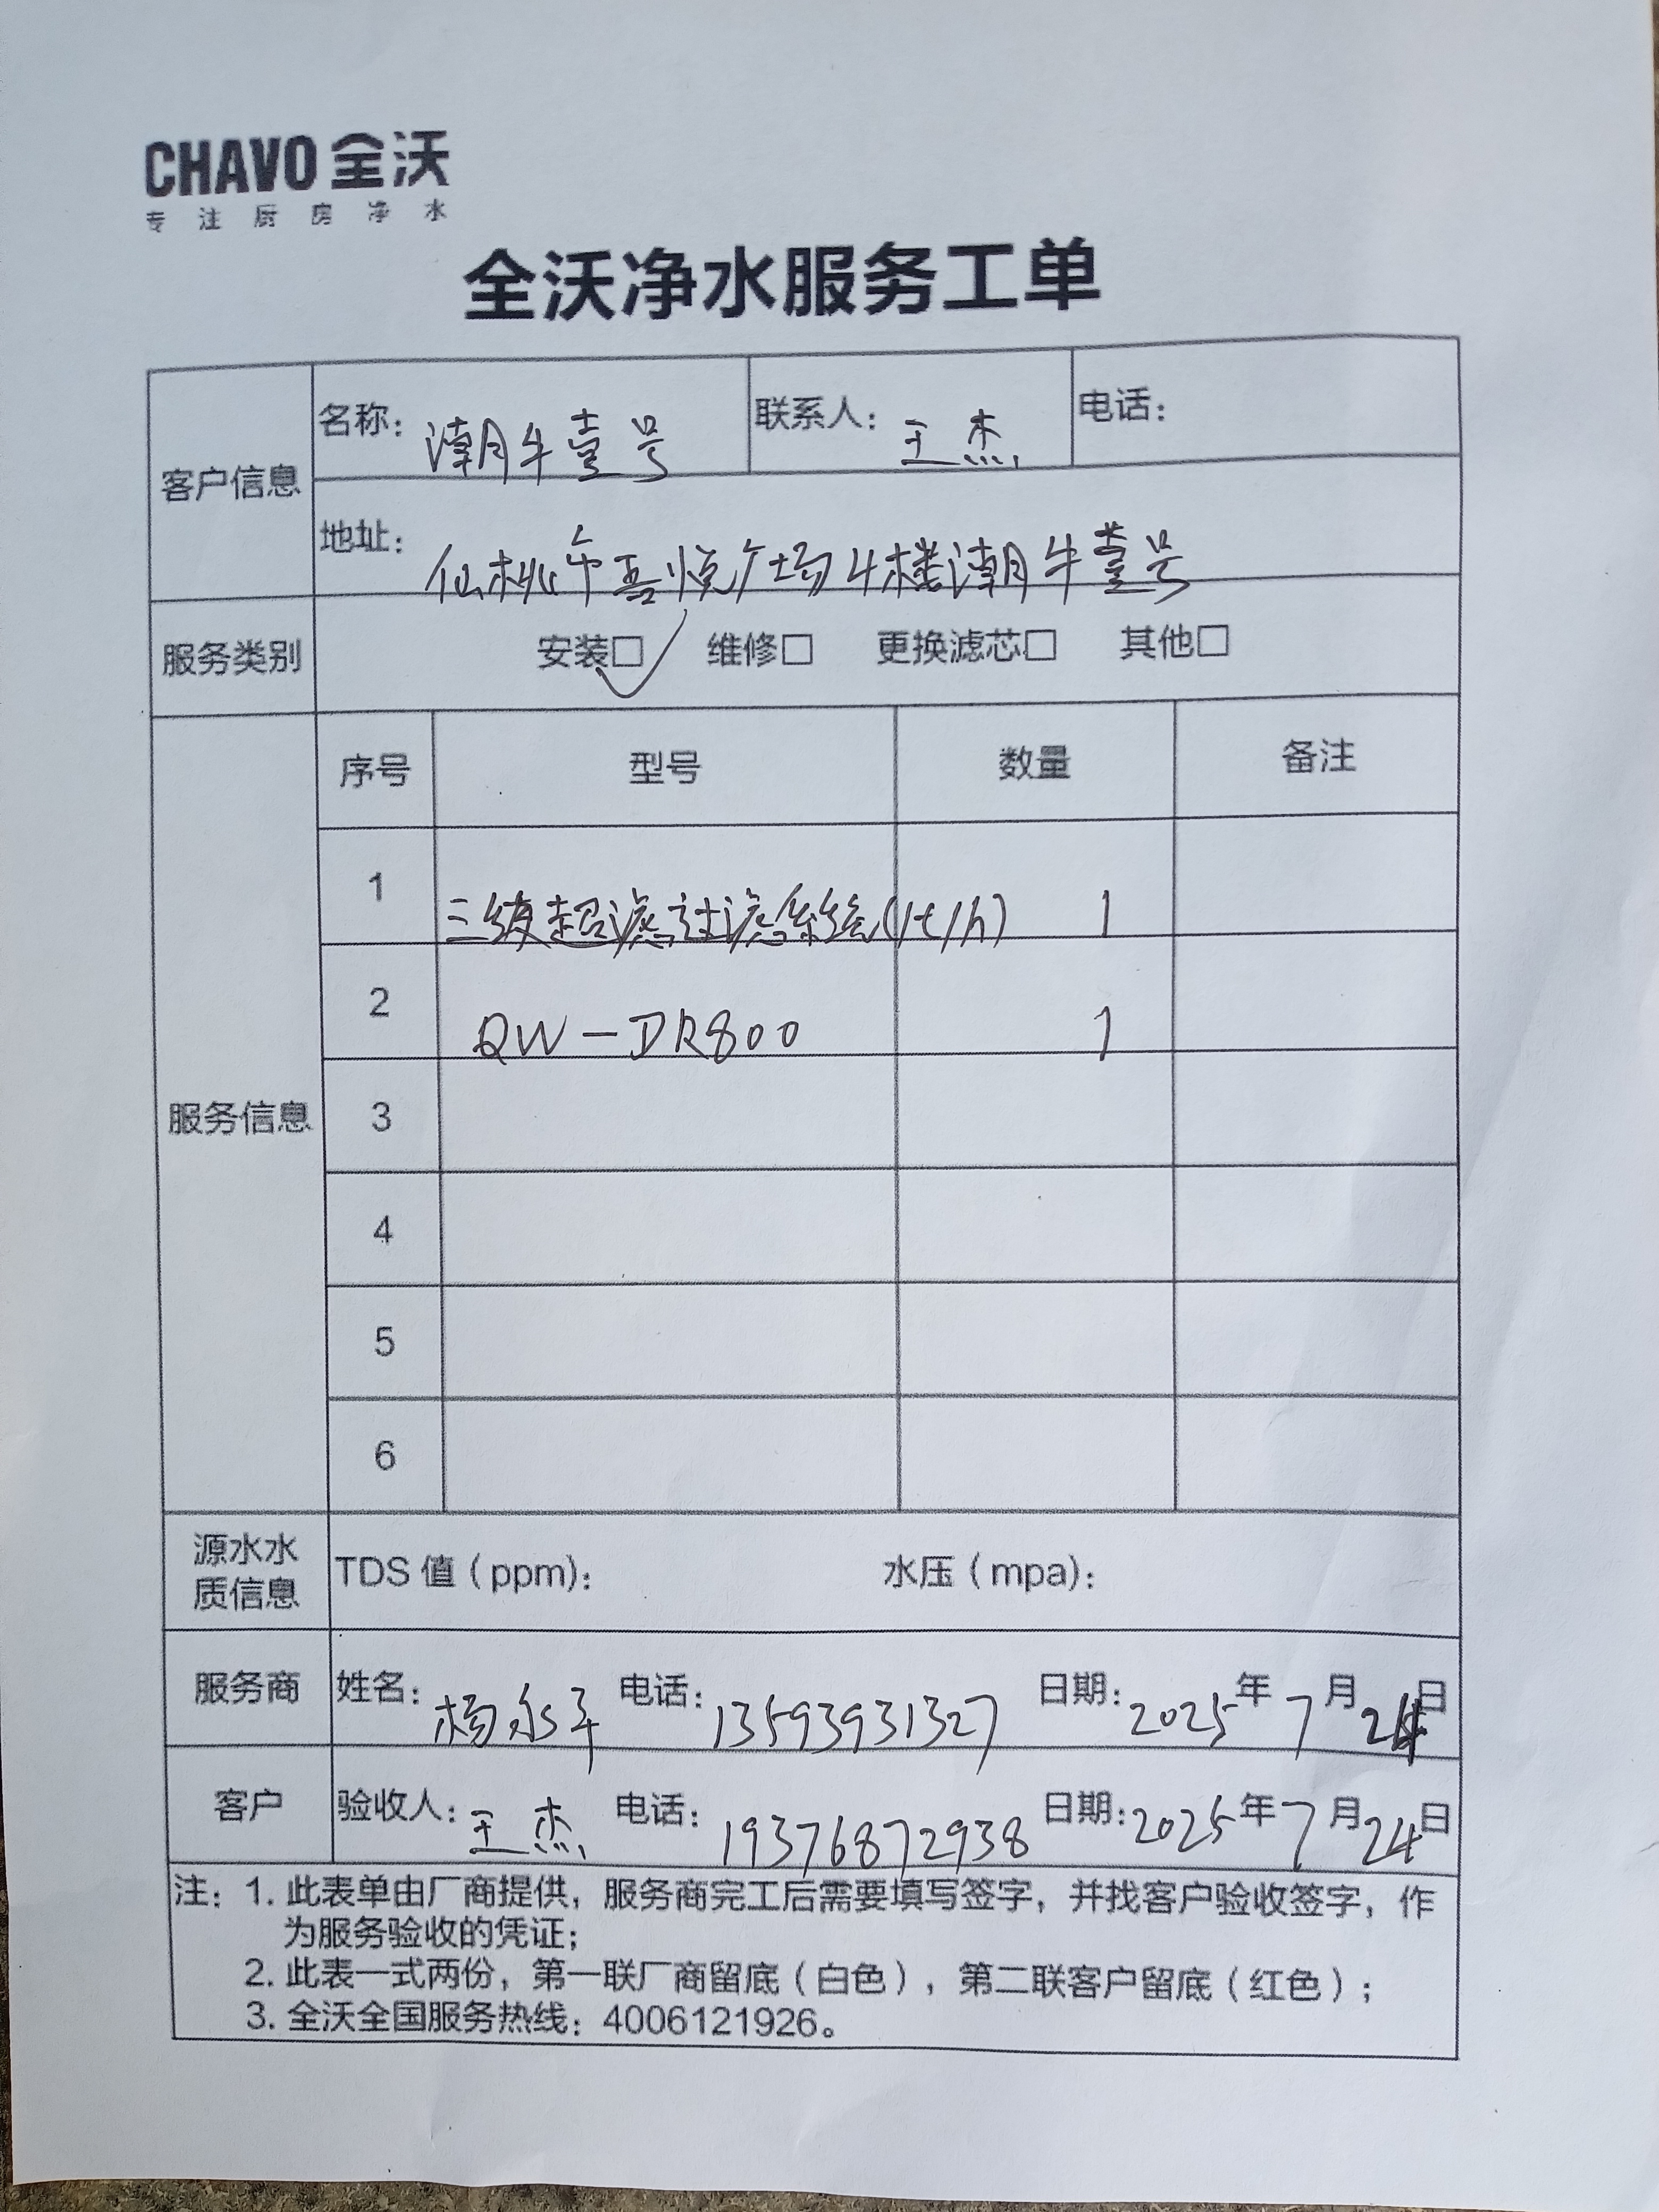 CHAVO 全沃
专注厨房净水
全沃净水服务工单
客户信息 名称：潮牛壹号 联系人：王杰 电话：
地址：仙桃市吾悦广场4楼潮牛壹号
服务类别 安装□✓ 维修□ 更换滤芯□ 其他□
服务信息 序号 型号 数量 备注
1 三级超滤过滤系统(1t/h) 1
2 QW-DR800 1
3
4
5
6
源水水质信息 TDS 值（ppm）： 水压（mpa）：
服务商 姓名：杨永平 电话：13593931327 日期：2025年7月24日
客户 验收人：王杰 电话：19376872938 日期：2025年7月24日
注：1. 此表单由厂商提供，服务商完工后需要填写签字，并找客户验收签字，作
为服务验收的凭证；
2. 此表一式两份，第一联厂商留底（白色），第二联客户留底（红色）；
3. 全沃全国服务热线：4006121926。